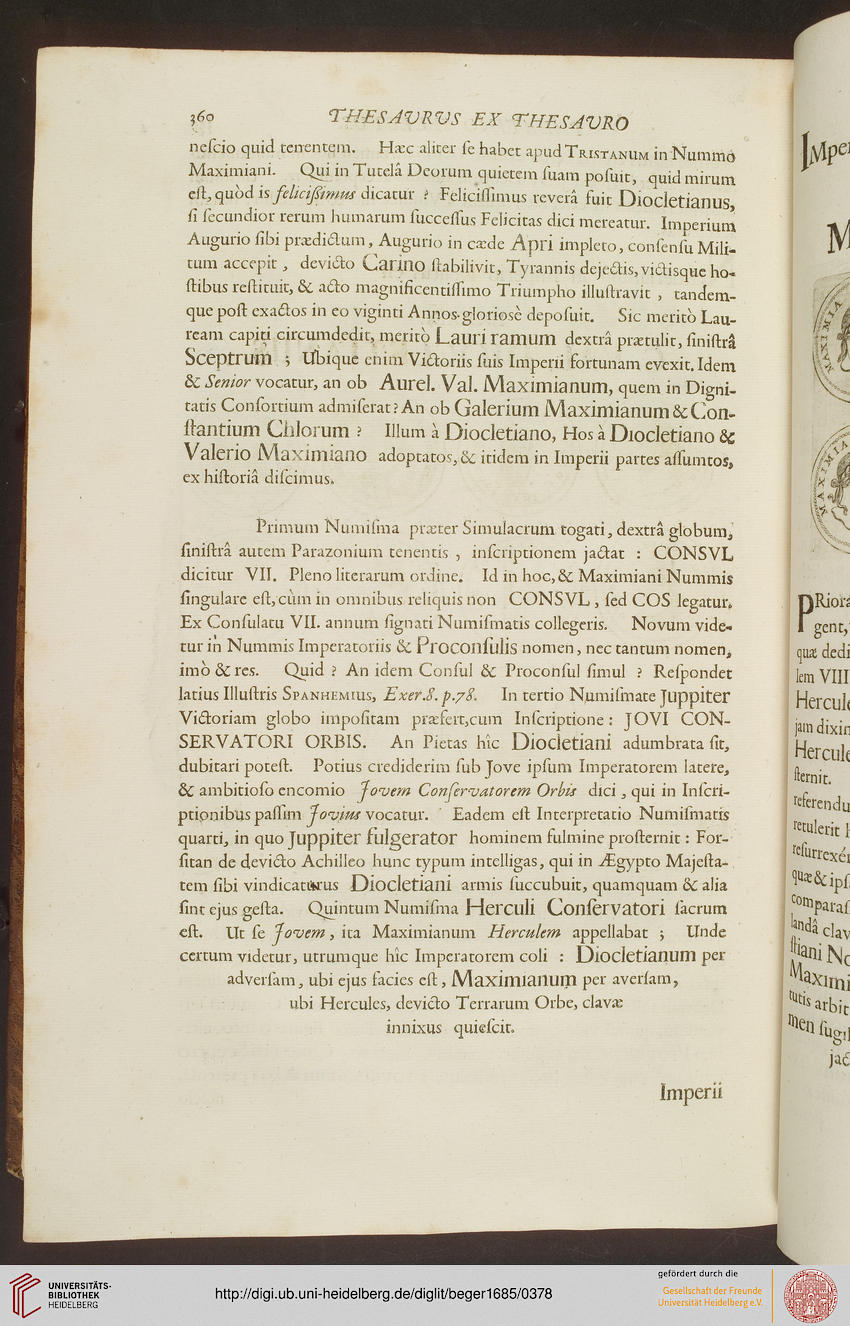 360 THESAVRVS EX THESAVRO
neſcio quid tenentem. Hæc aliter ſe habet apud TRISTANUM in Nummo
Maximiani. Qui in Tutelâ Deorum quietem ſuam poſuit, quid mirum
eſt, quòd is feliciſsimus dicatur ? Feliciſſimus reverâ fuit Diocletianus,
ſi ſecundior rerum humarum ſucceſſus Felicitas dici mereatur. Imperium
Augurio ſibi prædictum, Augurio in cæde Apri impleto, conſenſu Mili-
tum accepit, devicto Carino ſtabilivit, Tyrannis dejectis, victisque ho-
ſtibus reſtituit, & acto magnificentiſſimo Triumpho illuſtravit, tandem-
que poſt exactos in eo viginti Annos glorioſè depoſuit. Sic meritò Lau-
ream capiti circumdedit, meritò Lauri ramum dextrâ prætulit, ſiniſtrâ
Sceptrum ; Ubique enim Victoriis ſuis Imperii fortunam evexit. Idem
& Senior vocatur, an ob Aurel. Val. Maximianum, quem in Digni-
tatis Conſortium admiſerat? An ob Galerium Maximianum & Con-
ſtantium Chlorum ? Illum à Diocletiano, Hos à Diocletiano &
Valerio Maximiano adoptatos, & itidem in Imperii partes aſſumtos,
ex hiſtoriâ diſcimus.
Primum Numiſma præter Simulacrum togati, dextrâ globum,
ſiniſtrâ autem Parazonium tenentis , inſcriptionem jactat : CONSVL
dicitur VII. Pleno literarum ordine. Id in hoc, & Maximiani Nummis
ſingulare eſt, cùm in omnibus reliquis non CONSVL, ſed COS legatur.
Ex Conſulatu VII. annum ſignati Numiſmatis collegeris. Novum vide-
tur in Nummis Imperatoriis & Proconſulis nomen, nec tantum nomen,
imò & res. Quid ? An idem Conſul & Proconſul ſimul ? Reſpondet
latius Illuſtris SPANHEMIUS, Exer.8. p.78. In tertio Numiſmate Juppiter
Victoriam globo impoſitam præfert, cum Inſcriptione : JOVI CON-
SERVATORI ORBIS. An Pietas hîc Diocletiani adumbrata ſit,
dubitari poteſt. Potius crediderim ſub Jove ipſum Imperatorem latere,
& ambitioſo encomio Jovem Conſervatorem Orbis dici, qui in Inſcri-
ptionibus paſſim Jovius vocatur. Eadem eſt Interpretatio Numiſmatis
quarti, in quo Juppiter fulgerator hominem fulmine proſternit : For-
ſitan de devicto Achilleo hunc typum intelligas, qui in Ægypto Majeſta-
tem ſibi vindicaturus Diocletiani armis ſuccubuit, quamquam & alia
ſint ejus geſta. Quintum Numiſma Herculi Conſervatori ſacrum
eſt. Ut ſe Jovem, ita Maximianum Herculem appellabat ; Unde
certum videtur, utrumque hîc Imperatorem coli : Diocletianum per
adverſam, ubi ejus facies eſt, Maximianum per averſam,
ubi Hercules, devicto Terrarum Orbe, clavæ
innixus quieſcit.
Imperii
PRiora
gent,
quæ dedi
lem VIII
jam dixim
ſternit.
UNIVERSITÄTS-
BIBLIOTHEK
HEIDELBERG
http://digi.ub.uni-heidelberg.de/diglit/beger1685/0378
gefördert durch die
Gesellschaft der Freunde
Universität Heidelberg e.V.